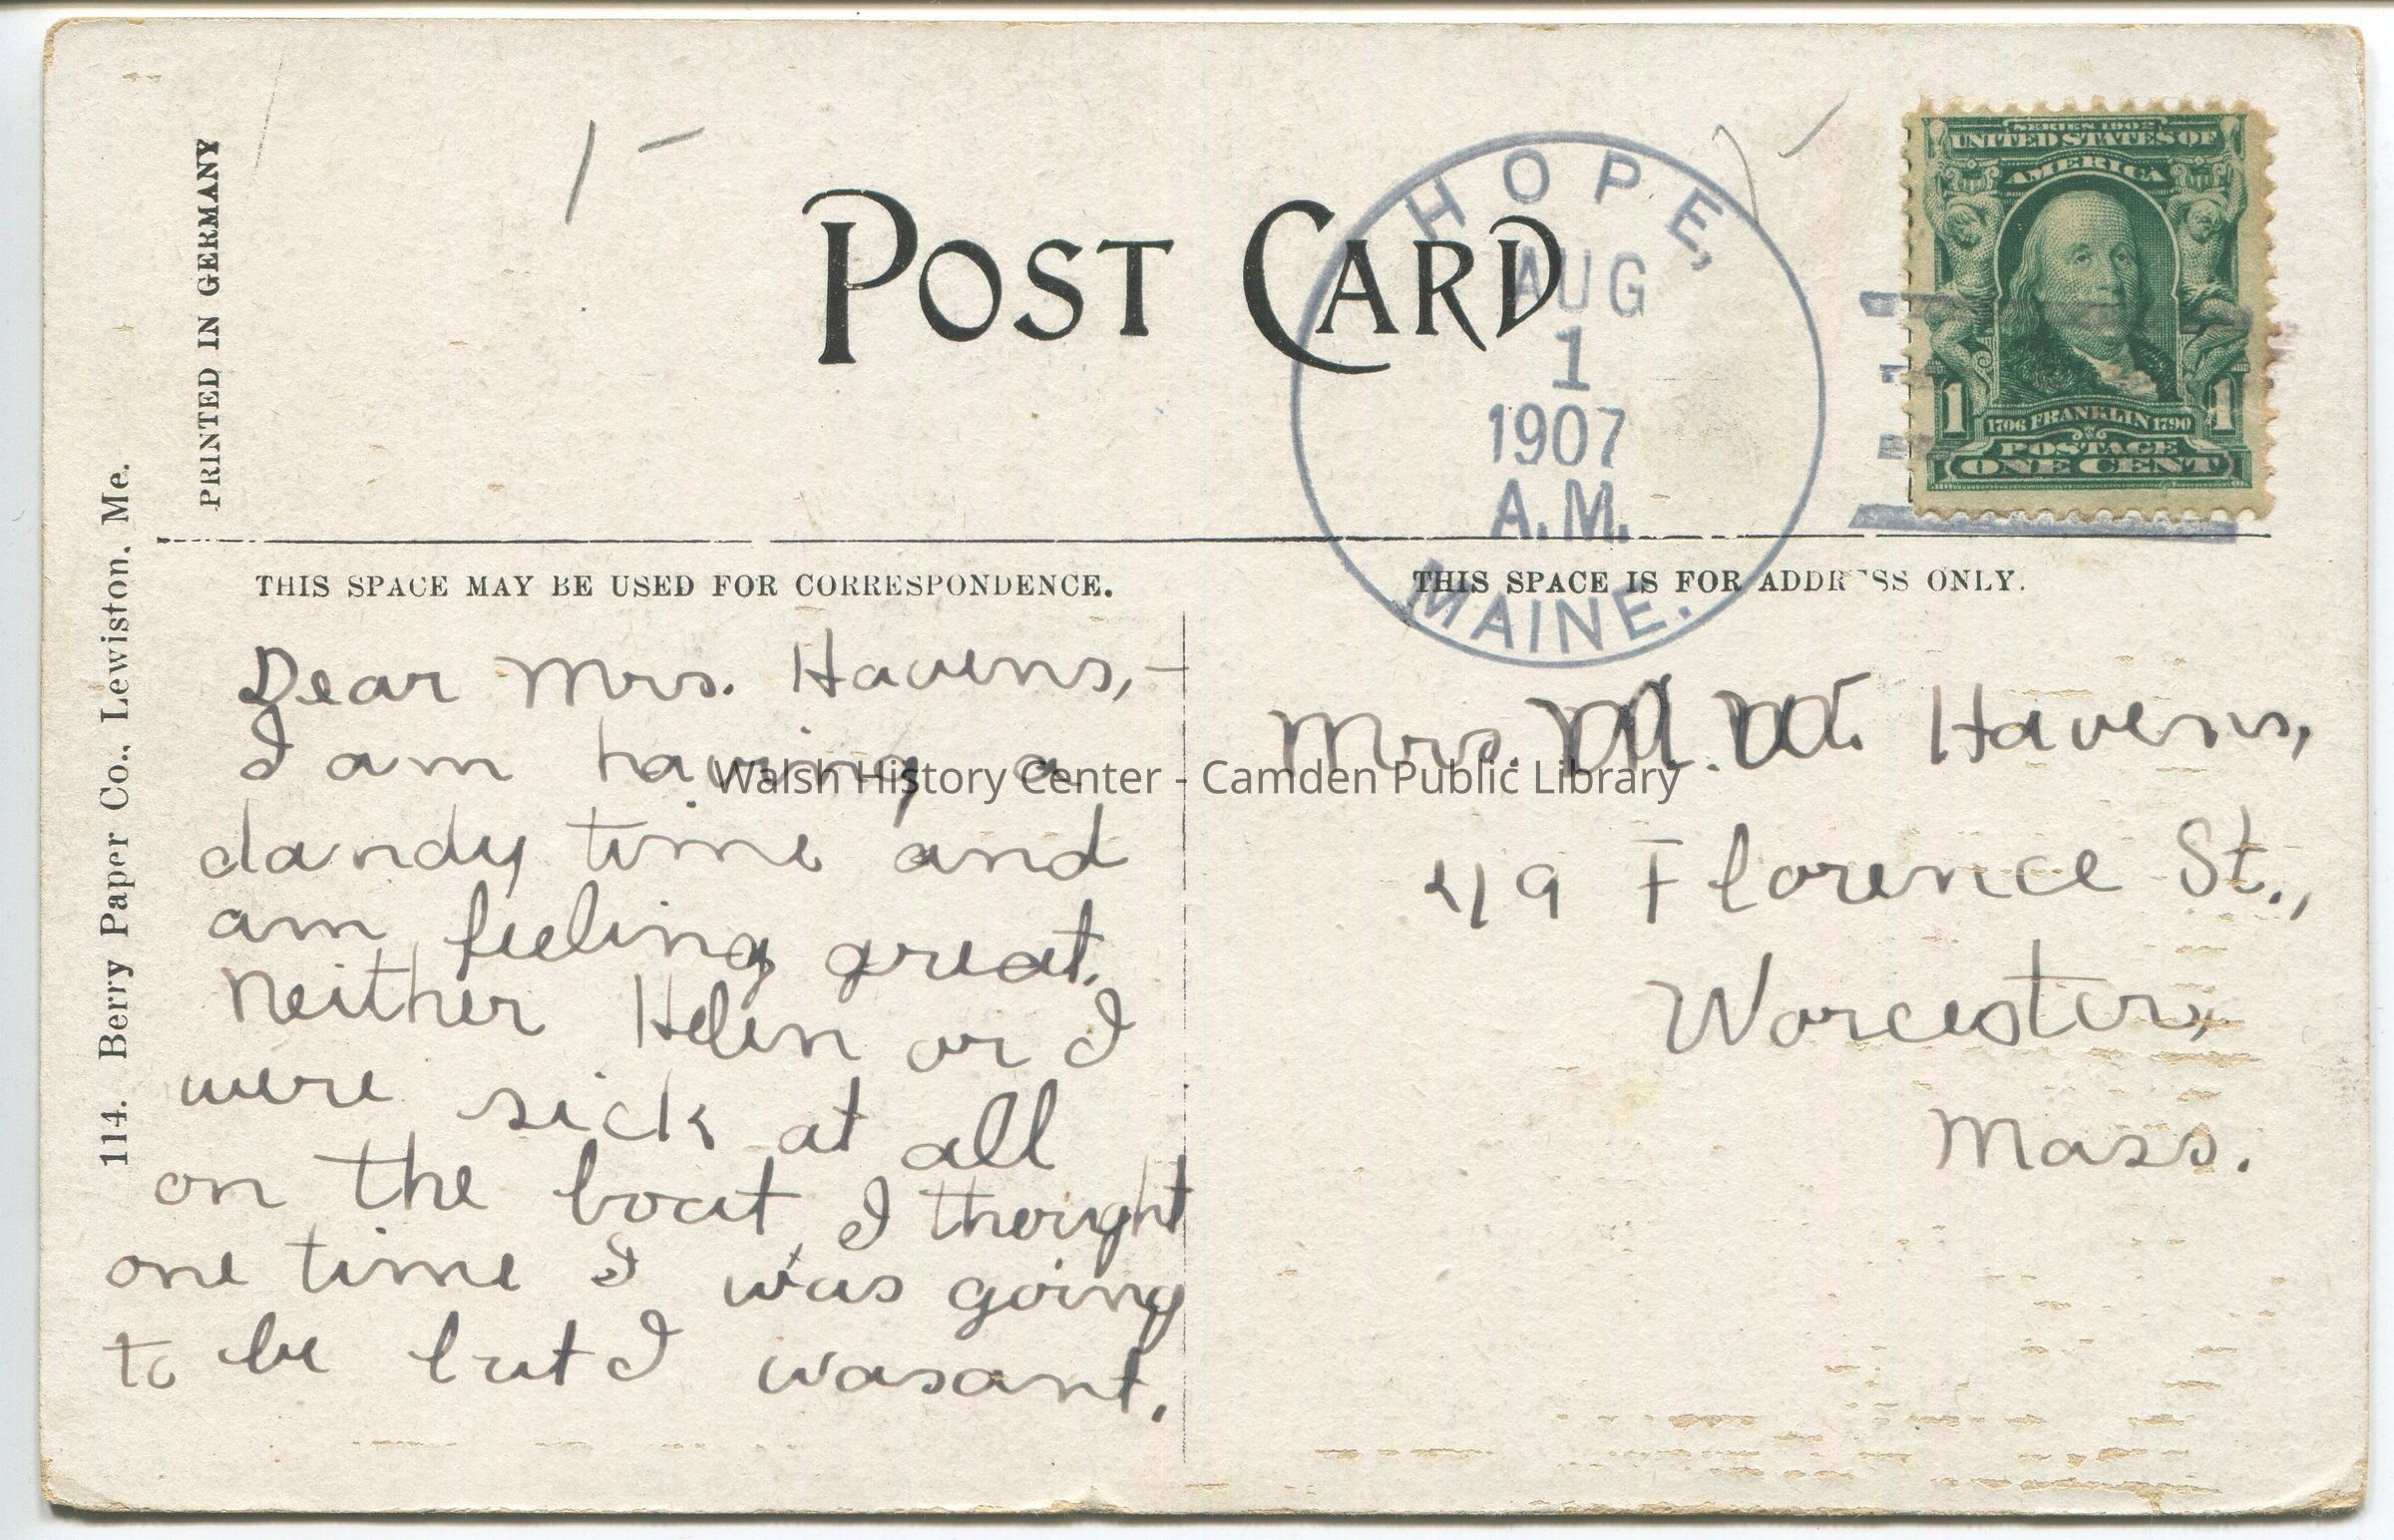 PRINTED IN GERMANY
114. Berry Paper Co., Lewiston, Me.
POST CARD
HOPE,
AUG
1
1907
A.M.
MAINE.
SERIES 1902
UNITED STATES OF
AMERICA
1706 FRANKLIN 1790
1 1
POSTAGE
ONE CENT
THIS SPACE MAY BE USED FOR CORRESPONDENCE.
THIS SPACE IS FOR ADDRESS ONLY.
Dear Mrs. Havens,-
I am having a
dandy time and
am feeling great.
Neither Helen or I
were sick at all
on the boat, I thought
one time I was going
to be but I wasant.
Mrs. Havens,
49 Florence St.,
Worcester,
Mass.
Walsh History Center - Camden Public Library